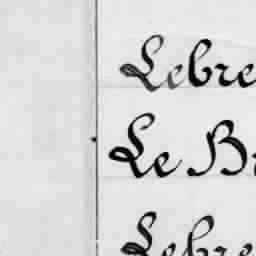 Lebre
Le Br
Lebre